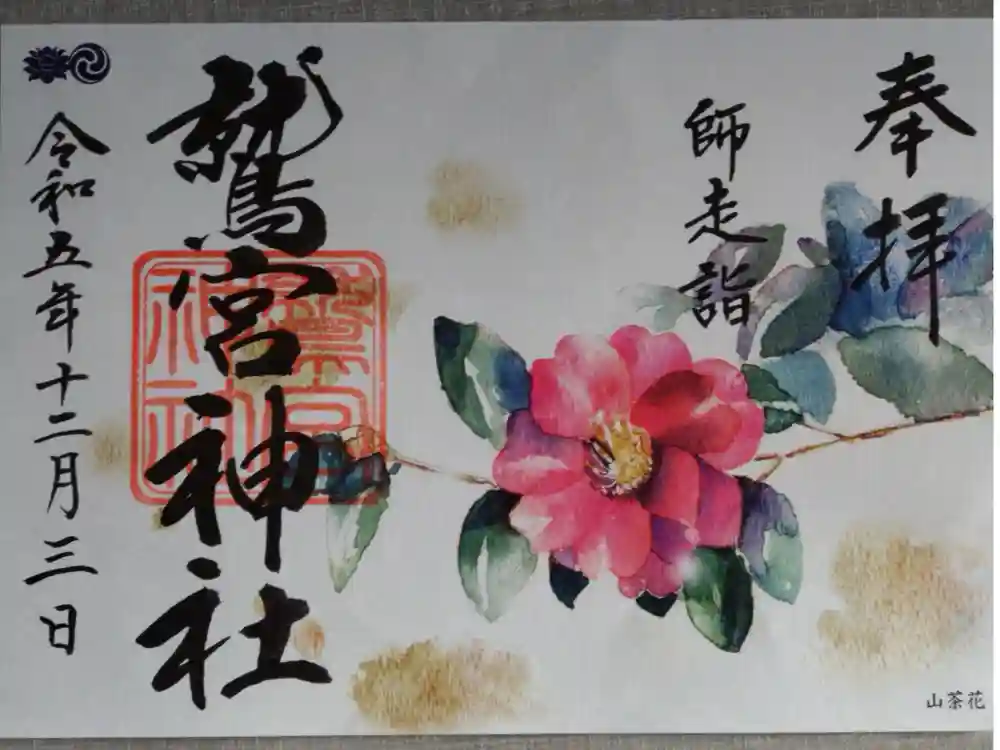 奉拝
師走詣
鷲宮神社
鷲宮
神社
令和五年十二月三日
山茶花